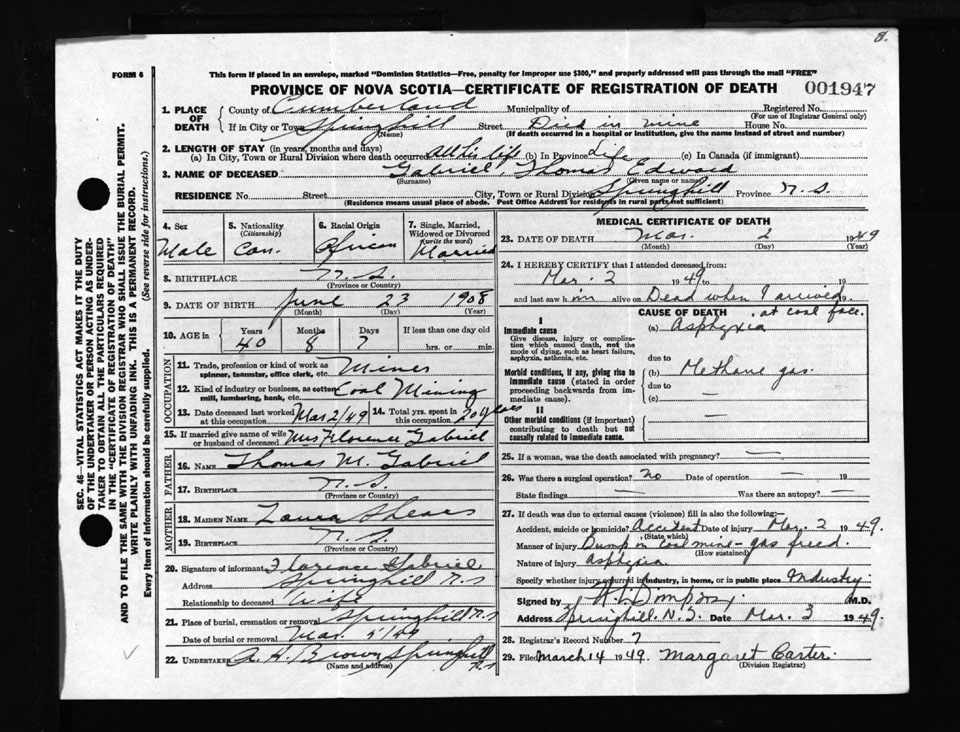 8.
FORM 6
This form if placed in an envelope, marked "Dominion Statistics—Free, penalty for improper use $300," and properly addressed will pass through the mail "FREE"
PROVINCE OF NOVA SCOTIA—CERTIFICATE OF REGISTRATION OF DEATH 001947
SEC. 46—VITAL STATISTICS ACT MAKES IT THE DUTY
OF THE UNDERTAKER OR PERSON ACTING AS UNDER-
TAKER TO OBTAIN ALL THE PARTICULARS REQUIRED
IN THE "CERTIFICATE OF REGISTRATION OF DEATH"
AND TO FILE THE SAME WITH THE DIVISION REGISTRAR WHO SHALL ISSUE THE BURIAL PERMIT.
WRITE PLAINLY WITH UNFADING INK. THIS IS A PERMANENT RECORD.
Every item of information should be carefully supplied. (See reverse side for instructions.)
1. PLACE OF DEATH County of Cumberland Municipality of Registered No.
(For use of Registrar General only)
If in City or Town Springhill Street Died in mine House No.
(Name) (If death occurred in a hospital or institution, give the name instead of street and number)
2. LENGTH OF STAY (in years, months and days)
(a) In City, Town or Rural Division where death occurred All his life (b) In Province Life (c) In Canada (if immigrant)
3. NAME OF DECEASED Gabriel, Thomas Edward
(Surname) (Given name or names)
RESIDENCE No. Street City, Town or Rural Division Springhill Province N.S.
(Residence means usual place of abode. Post Office Address for residents in rural parts not sufficient)
4. Sex Male
5. Nationality (Citizenship) Can.
6. Racial Origin African
7. Single, Married, Widowed or Divorced (write the word) Married
8. BIRTHPLACE N.S.
(Province or Country)
9. DATE OF BIRTH June 23 1908
(Month) (Day) (Year)
10. AGE in Years Months Days If less than one day old
40 8 7 hrs. or min.
OCCUPATION
11. Trade, profession or kind of work as spinner, teamster, office clerk, etc. Miner
12. Kind of industry or business, as cotton mill, lumbering, bank, etc. Coal Mining
13. Date deceased last worked at this occupation Mar 2/49 14. Total yrs. spent in this occupation 20 years
15. If married give name of wife or husband of deceased Mrs Florence Gabriel
FATHER
16. NAME Thomas M. Gabriel
17. BIRTHPLACE N.S.
(Province or Country)
MOTHER
18. MAIDEN NAME Laura Shears
19. BIRTHPLACE N.S.
(Province or Country)
20. Signature of informant Florence Gabriel
Address Springhill N.S
Relationship to deceased Wife
21. Place of burial, cremation or removal Springhill N.S
Date of burial or removal Mar. 5/49
22. UNDERTAKER A. H. Brown Springhill N.S
(Name and address)
MEDICAL CERTIFICATE OF DEATH
23. DATE OF DEATH Mar. 2 1949
(Month) (Day) (Year)
24. I HEREBY CERTIFY that I attended deceased from:
Mar. 2 1949 to 19
and last saw him alive on Dead when I arrived 19
CAUSE OF DEATH at coal face.
I
Immediate cause
Give disease, injury or complication which caused death, not the mode of dying, such as heart failure, asphyxia, asthenia, etc.
(a) Asphyxia
due to
Morbid conditions, if any, giving rise to immediate cause (stated in order proceeding backwards from immediate cause).
(b) Methane gas.
due to
(c) —
II
Other morbid conditions (if important) contributing to death but not causally related to immediate cause.
—
25. If a woman, was the death associated with pregnancy? —
26. Was there a surgical operation? No Date of operation — 19
State findings — Was there an autopsy? —
27. If death was due to external causes (violence) fill in also the following:
Accident, suicide or homicide? Accident Date of injury Mar. 2 1949.
(State which)
Manner of injury Bump in Coal mine - gas freed.
(How sustained)
Nature of injury Asphyxia
Specify whether injury occurred in industry, in home, or in public place Industry.
Signed by M.D.
Address Springhill. N.S. Date Mar. 3 1949.
28. Registrar's Record Number 7
29. Filed March 14 1949. Margaret Carter.
(Division Registrar)